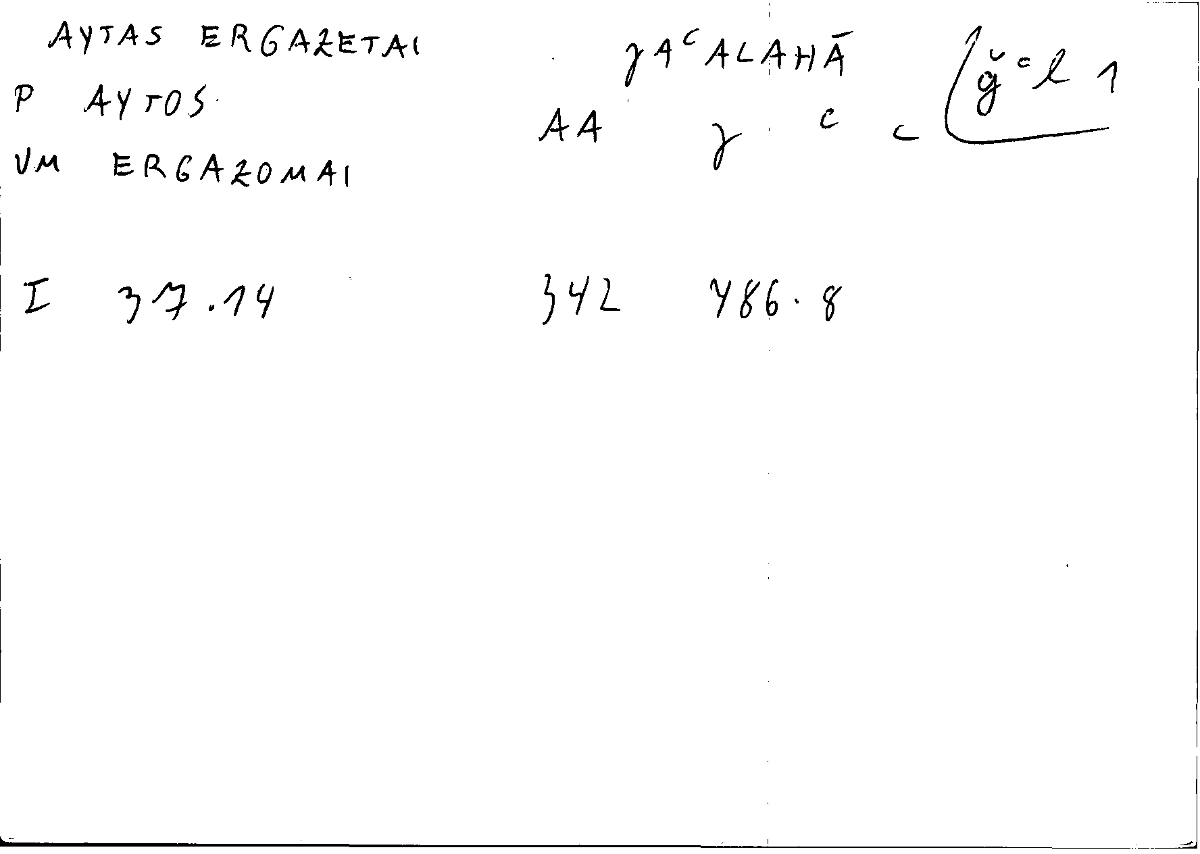 AYTAS ERGAZETAI ɣAᶜALAHĀ
ǧᶜl 1
P AYTOS AA ɣ c c
VM ERGAZOMAI
I 37.14 342 486.8